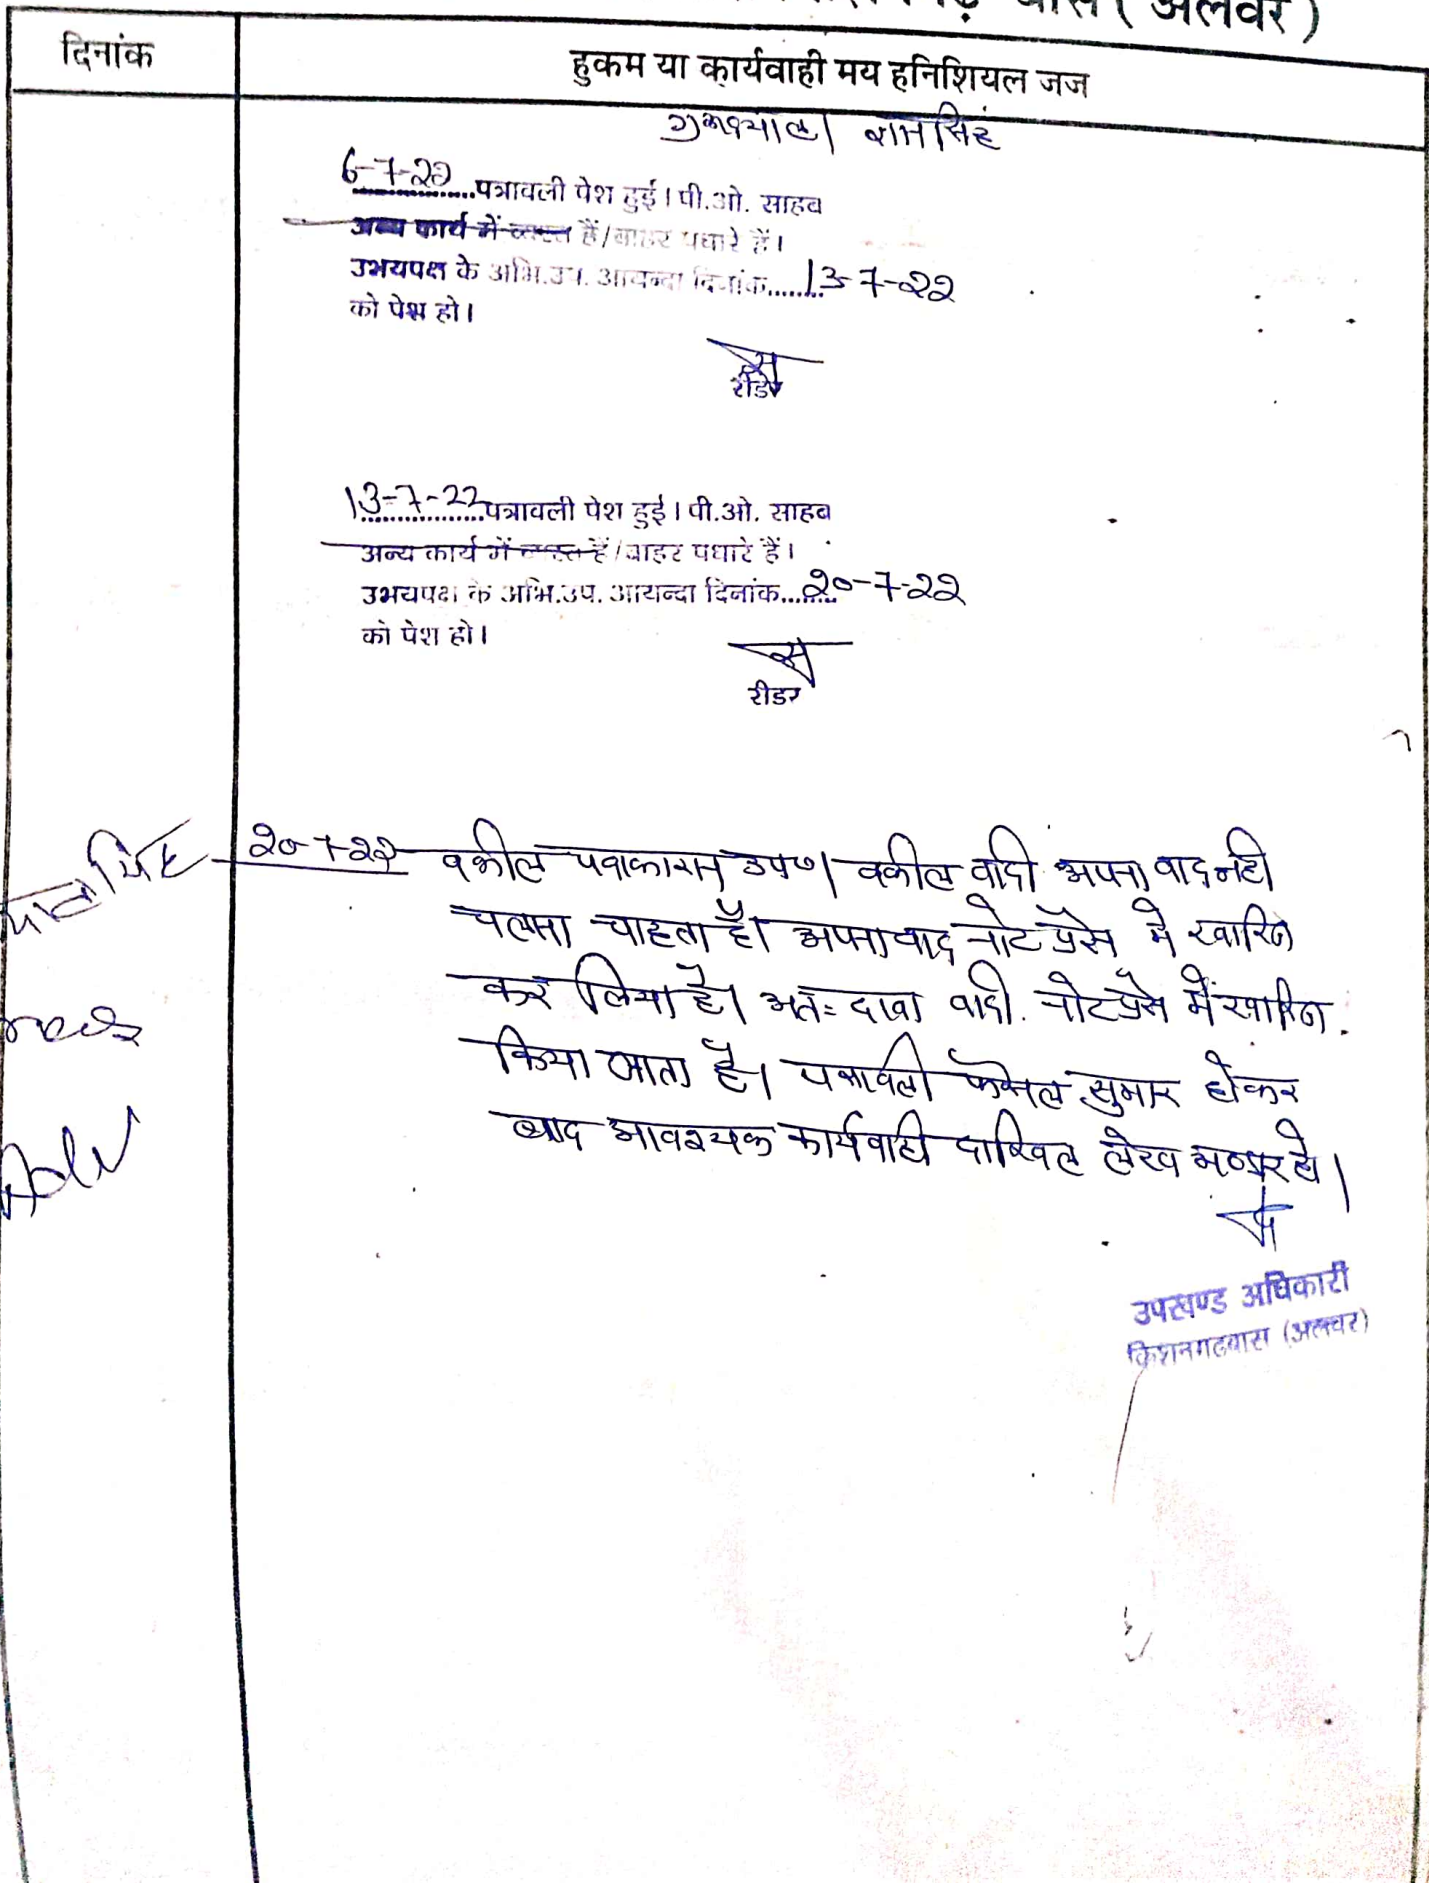 वास ( अलवर )
दिनांक
हुकम या कार्यवाही मय हनिशियल जज
रामसिंह
6-7-22 पत्रावली पेश हुई। पी.ओ. साहब
अन्य कार्य में व्यस्त हैं/बाहर पधारे हैं।
उभयपक्ष के अभि.उप. आयन्दा दिनांक........13-7-22
को पेश हो।
रीडर
13-7-22 पत्रावली पेश हुई। पी.ओ. साहब
अन्य कार्य में व्यस्त हैं/बाहर पधारे हैं।
उभयपक्ष के अभि.उप. आयन्दा दिनांक........20-7-22
को पेश हो।
रीडर
20-7-22 वकील पक्षकारान उप०। वकील वादी अपना वाद नही
चलाना चाहता है। अपना वाद नोट प्रेस मे खारिज
कर लिया है। अतः दावा वादी नोट प्रेस में खारिज
किया जाता है। पत्रावली फैसल सुमार होकर
बाद आवश्यक कार्यवाही दाखिल लेख भण्डार हो।
उपखण्ड अधिकारी
किशनगढबास (अलवर)
Adv